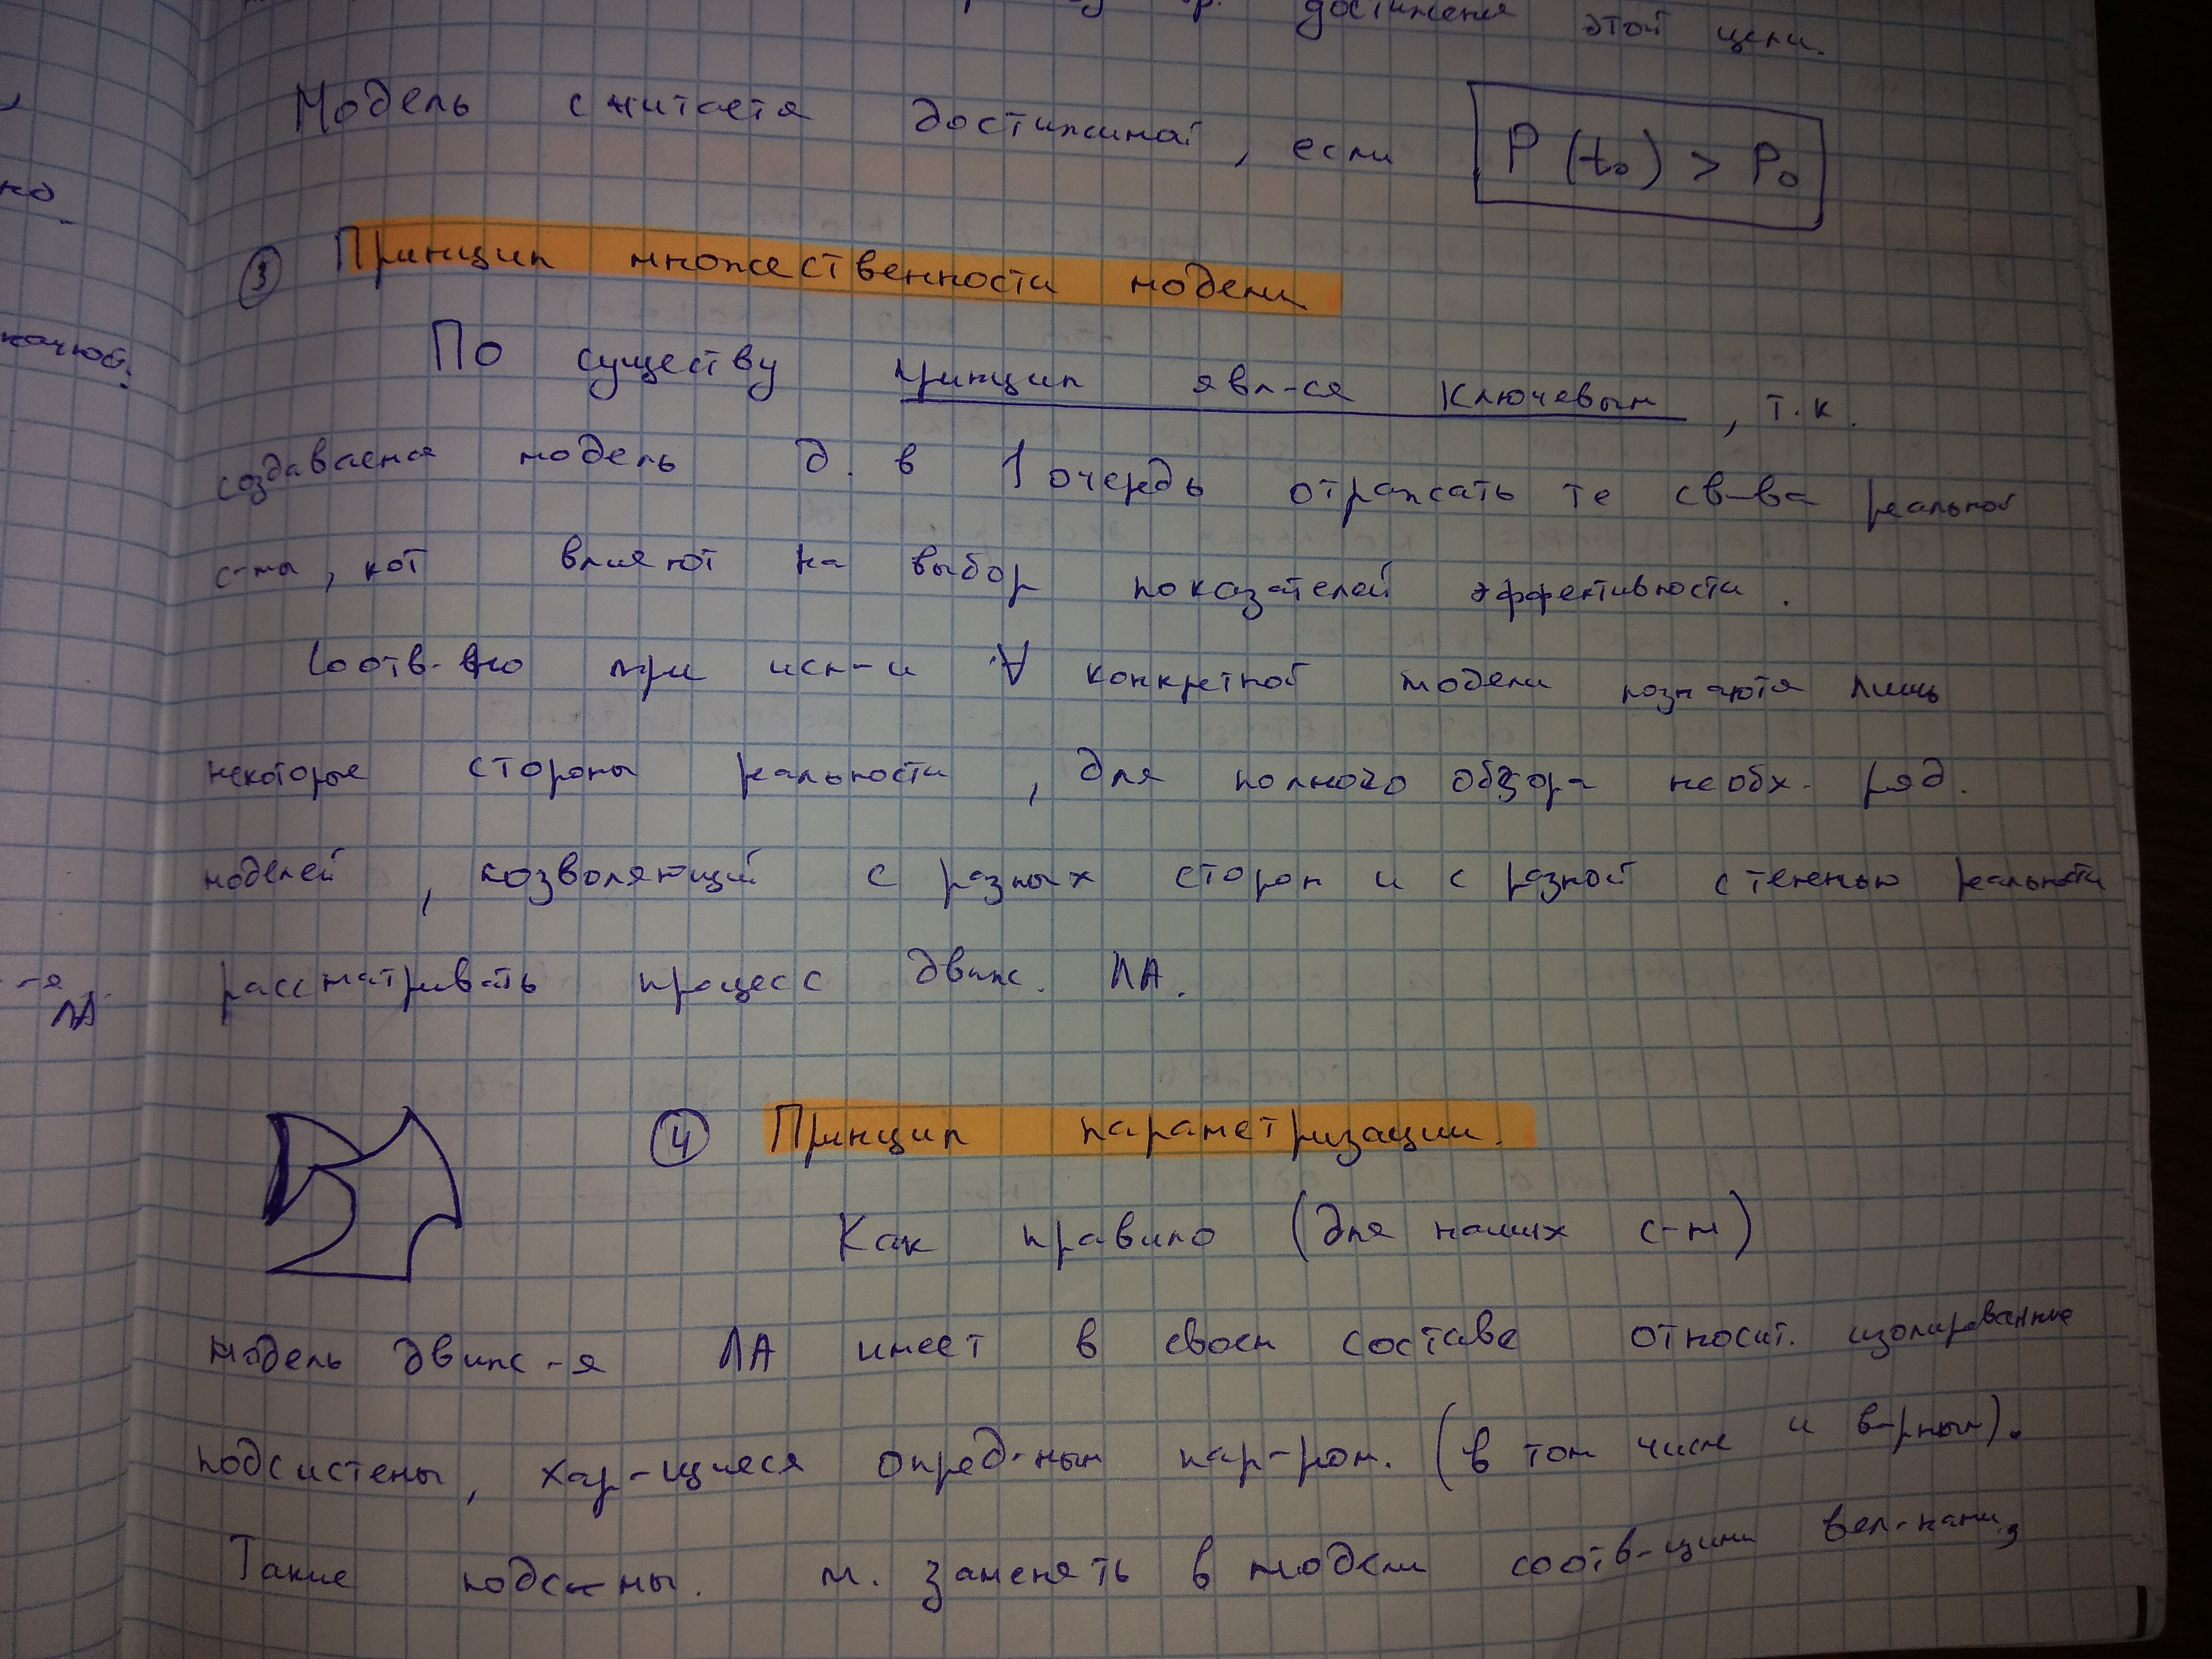 достижения этой цели.
Модель считается достижимой, если P(t₀) > P₀
③ Принцип множественности модели
По существу принцип явл-ся ключевым, т.к.
создаваемая модель д. в 1 очередь отражать те св-ва реальной
с-мы, кот влияют на выбор показателей эффективности.
Соотв-но при исп-и ∀ конкретной модели познаются лишь
некоторые стороны реальности, для полного обзора необх. ряд.
моделей, позволяющий с разных сторон и с разной степенью реальности
рассматривать процесс движ. ЛА.
-я
ЛА
④ Принцип параметризации.
Как правило (для наших с-м)
модель движ-я ЛА имеет в своем составе относит. изолированные
подсистемы, хар-щиеся опред-ным пар-ром. (в том числе и в-рным).
Такие подс-мы. м. заменять в модели соотв-щими вел-нами,